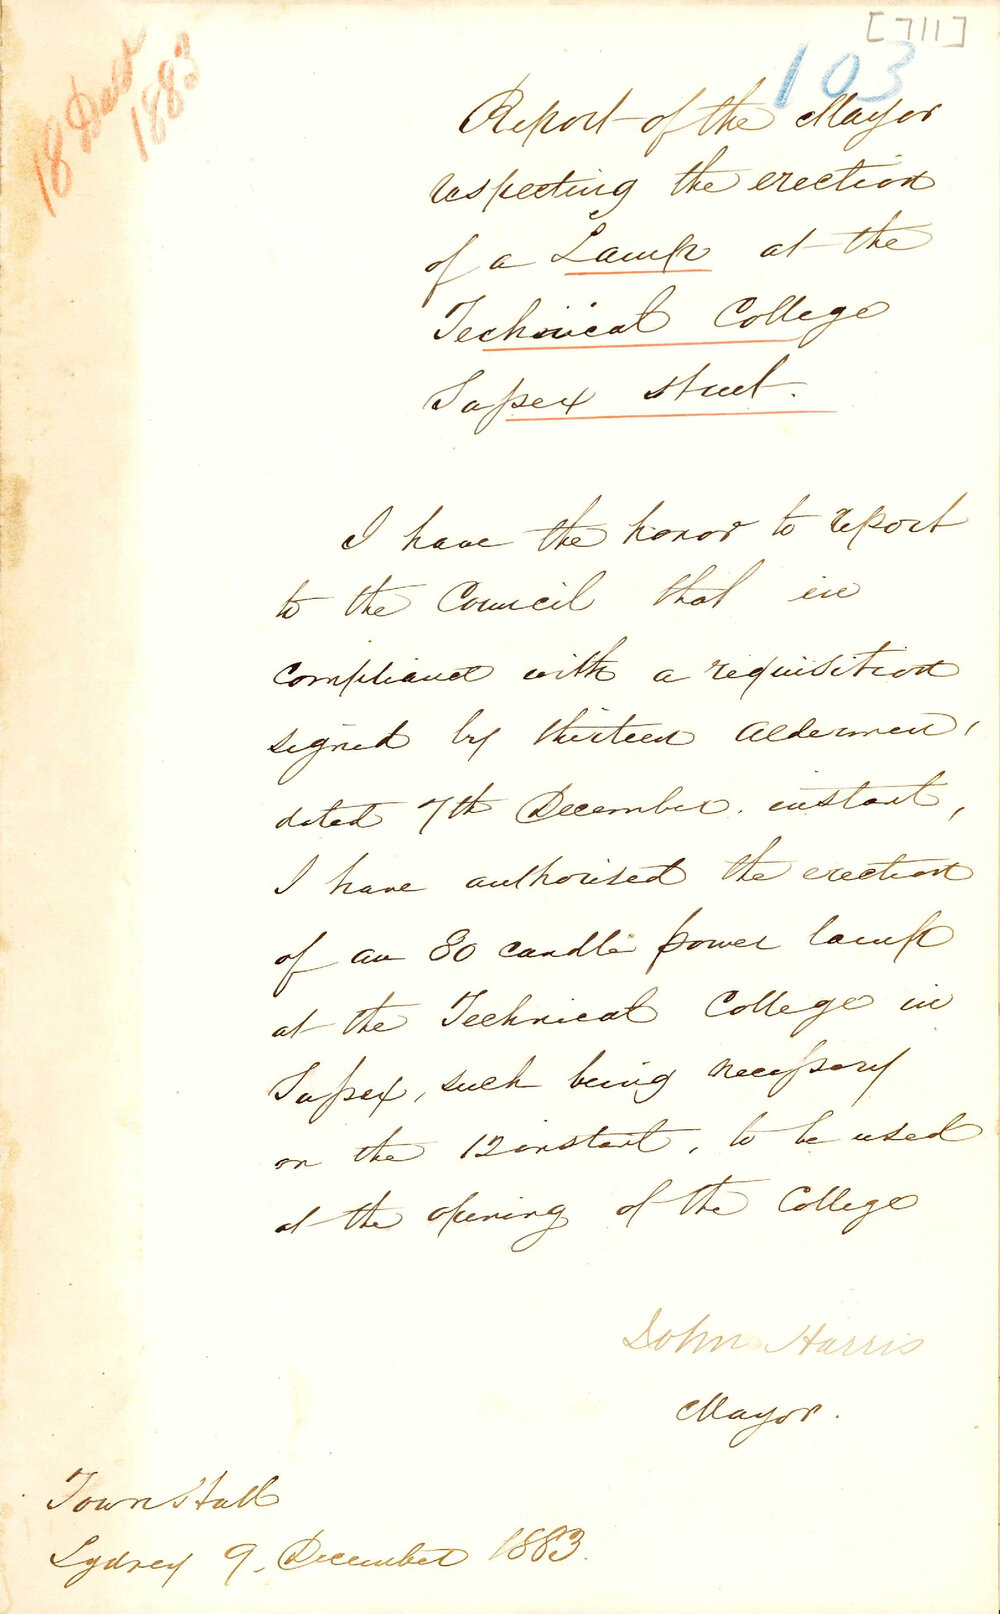 [711]
103
18 Decr
1883
Report of the Mayor
respecting the erection
of a Lamp at the
Technical College
Sussex street.
I have the honor to report
to the Council that in
compliance with a requisition
signed by thirteen Aldermen,
dated 7th December instant,
I have authorised the erection
of an 80 candle power lamp
at the Technical College in
Sussex, such being necessary
on the 12 instant, to be used
at the opening of the College
John Harris
Mayor.
Town Hall
Sydney 9. December 1883.